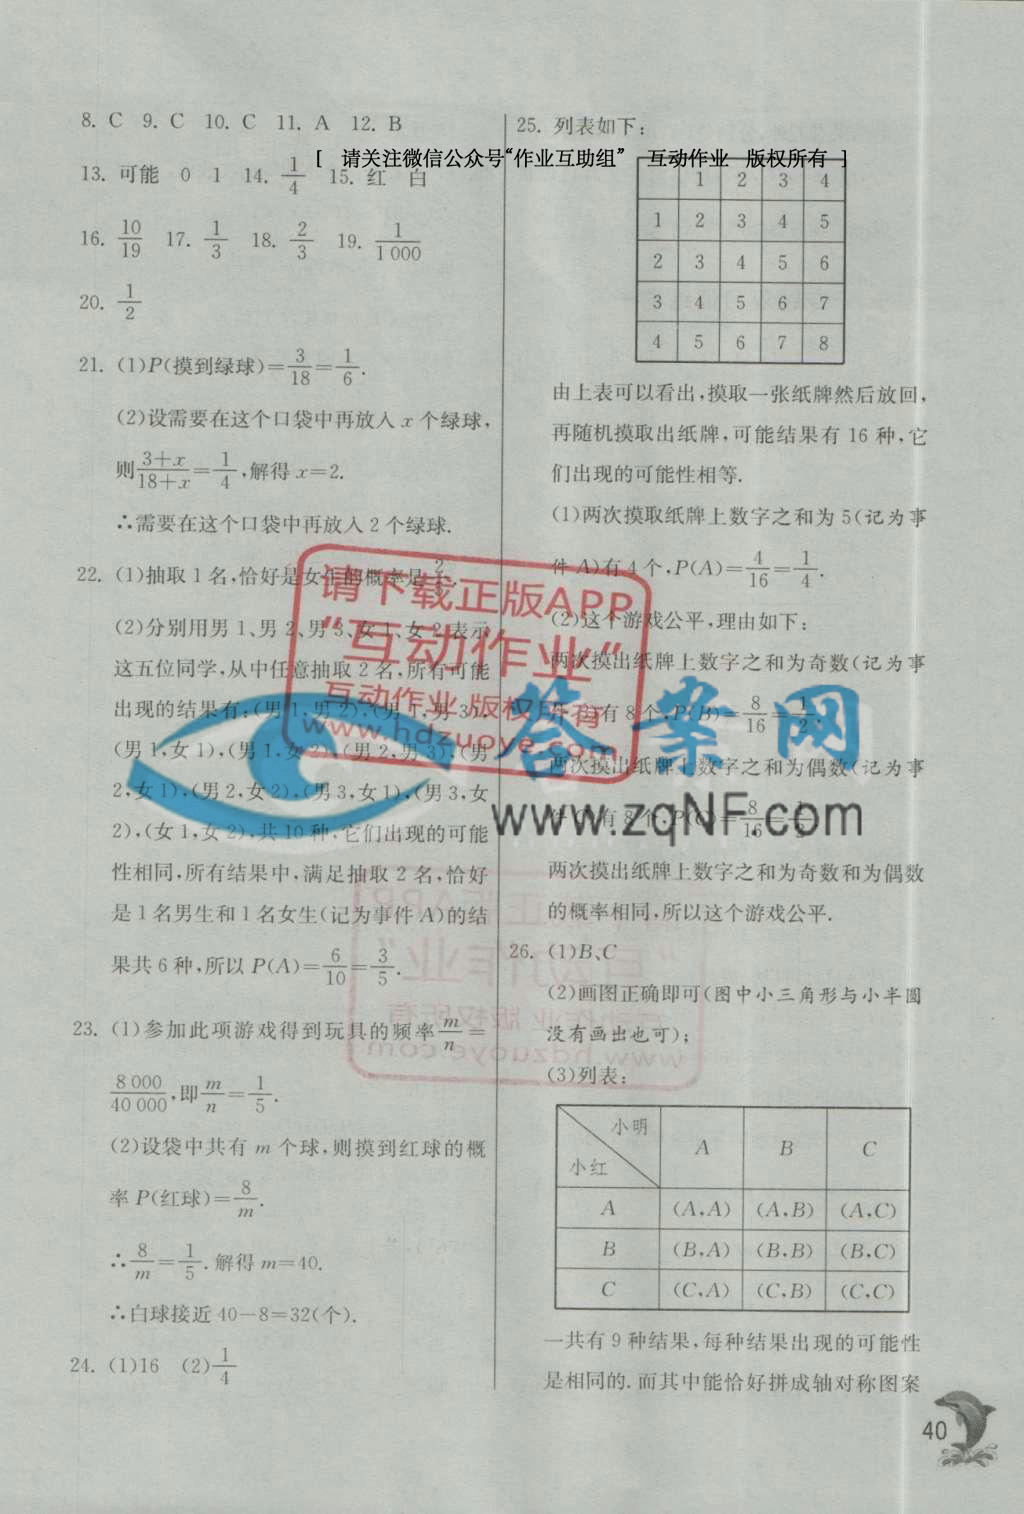 8. C 9. C 10. C 11. A 12. B
[ 请关注微信公众号“作业互助组” 互动作业 版权所有 ]
13. 可能 0 1 14. 1/4 15. 红 白
16. 10/19 17. 1/3 18. 2/3 19. 1/1000
20. 1/2
21. (1)P(摸到绿球)=3/18=1/6.
(2)设需要在这个口袋中再放入 x 个绿球,
则(3+x)/(18+x)=1/4,解得 x=2.
∴需要在这个口袋中再放入 2 个绿球.
22. (1)抽取 1 名,恰好是女生的概率是
(2)分别用男 1、男 2、男 3、女 1、女 2 表示
这五位同学,从中任意抽取 2 名,所有可能
出现的结果有:(男 1,男 2),(男 1,男 3),
(男 1,女 1),(男 1,女 2),(男 2,男 3),(男
2,女 1),(男 2,女 2),(男 3,女 1),(男 3,女
2),(女 1,女 2),共 10 种,它们出现的可能
性相同,所有结果中,满足抽取 2 名,恰好
是 1 名男生和 1 名女生(记为事件 A)的结
果共 6 种,所以 P(A)=6/10=3/5.
23. (1)参加此项游戏得到玩具的频率 m/n=
8 000/40 000,即 m/n=1/5.
(2)设袋中共有 m 个球,则摸到红球的概
率 P(红球)=8/m.
∴8/m=1/5.解得 m=40.
∴白球接近 40-8=32(个).
24. (1)16 (2)1/4
25. 列表如下:
1 2 3 4
1 2 3 4 5
2 3 4 5 6
3 4 5 6 7
4 5 6 7 8
由上表可以看出,摸取一张纸牌然后放回,
再随机摸取出纸牌,可能结果有 16 种,它
们出现的可能性相等.
(1)两次摸取纸牌上数字之和为 5(记为事
件 A)有 4 个,P(A)=4/16=1/4.
(2)这个游戏公平,理由如下:
两次摸出纸牌上数字之和为奇数(记为事
有 8 个,P(B)=8/16=1/2;
两次摸出纸牌上数字之和为偶数(记为事
有 8 个,P(C)=8/16=
两次摸出纸牌上数字之和为奇数和为偶数
的概率相同,所以这个游戏公平.
26. (1)B、C
(2)画图正确即可(图中小三角形与小半圆
没有画出也可);
(3)列表:
小明
小红
A B C
A (A,A) (A,B) (A,C)
B (B,A) (B,B) (B,C)
C (C,A) (C,B) (C,C)
一共有 9 种结果,每种结果出现的可能性
是相同的.而其中能恰好拼成轴对称图案
40
请下载正版APP
“互动作业”
互动作业 版权所有
www.hdzuoye.com
答案网
www.zqNF.com